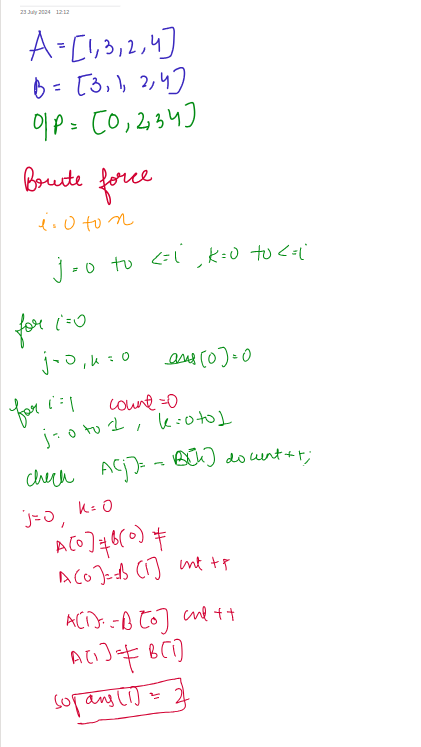 23 July 2024 12:12
A = [1,3,2,4]
B = [3,1,2,4]
O/P = [0,2,3,4]
Boute force
i=0 to n
j=0 to <=i , k=0 to <=i
for i=0
j=0, k=0 ans[0]=0
for i=1 count=0
j=0 to 1, k=0 to 1
check A[j]== B[k] do cunt++;
j=0, k=0
A[0]≠B[0] ≠
A[0]==B[1] cnt++
A[1]==B[0] cnt++
A[1]≠B[1]
so ans[1] = 2